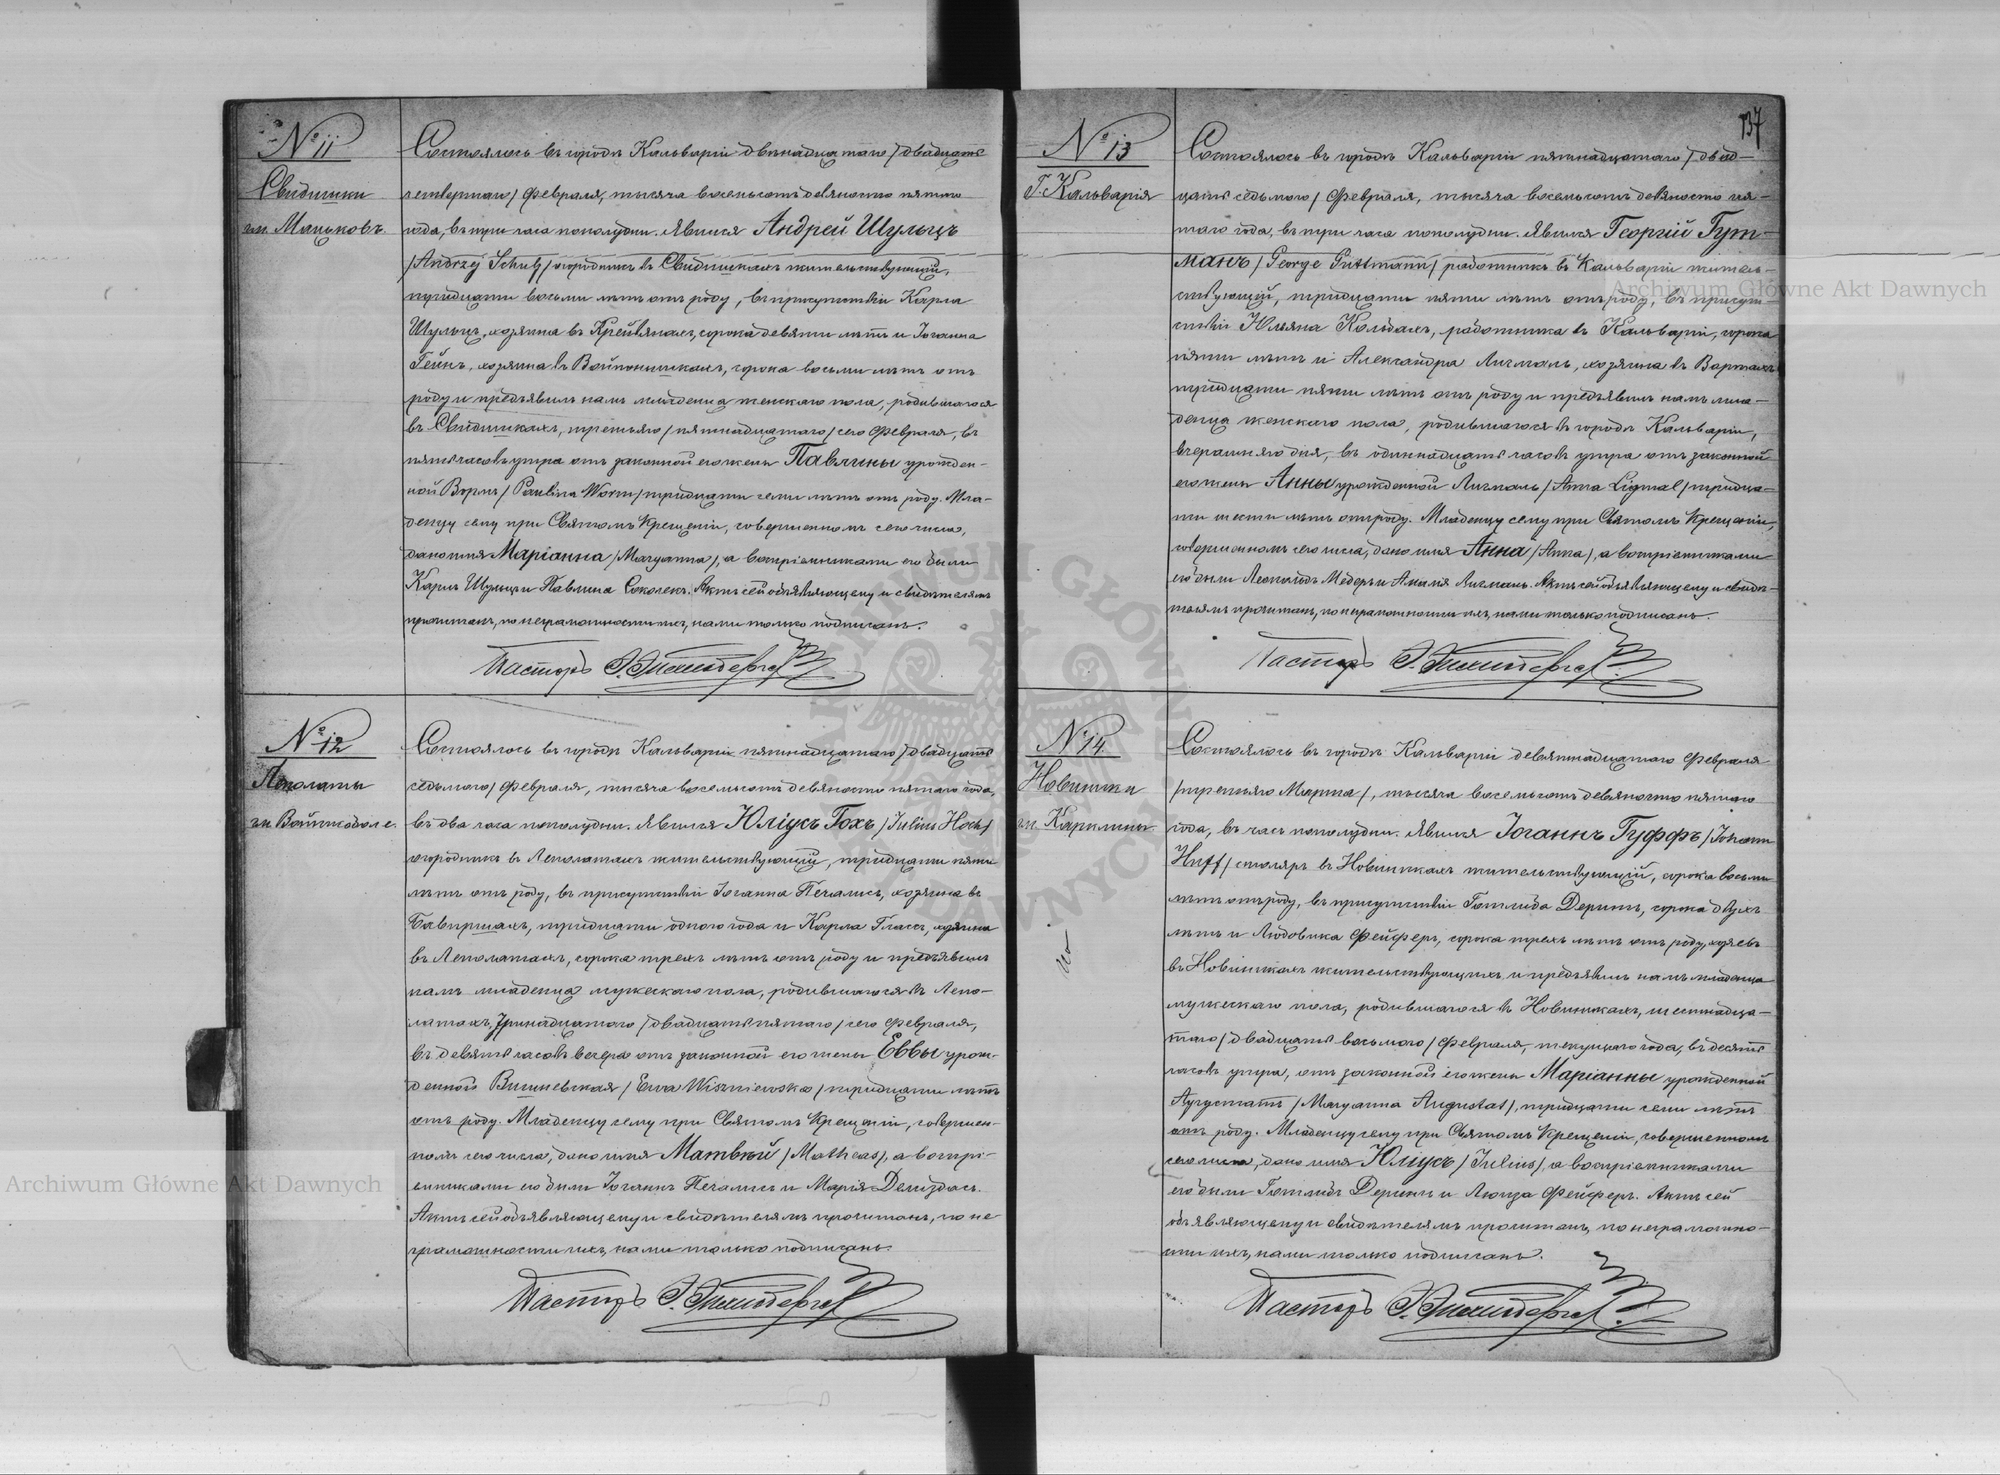 № 11
Свидишки
гм. Маньковъ
Состоялось въ городѣ Кальваріи двѣнадцатаго /двадцать
четвертаго/ Февраля, тысяча восемьсотъ девяносто пятаго
года, въ три часа пополудни. Явился Андрей Шульцъ
/Andrzej Schulz/ огородникъ въ Свидишкахъ жительствующій,
тридцати восьми лѣтъ отъ роду, въ присутствіи Карла
Шульцъ, хозяина въ Крейвянахъ, сорока девяти лѣтъ и Іоганна
Гейнъ, хозяина въ Войпонишкахъ, сорока восьми лѣтъ отъ
роду и предъявилъ намъ младенца женскаго пола, родившагося
въ Свидишкахъ, третьяго /пятнадцатаго/ сего Февраля, въ
пять часовъ утра отъ законной его жены Павлины урожден-
ной Вормъ /Paulina Worm/ тридцати семи лѣтъ отъ роду. Мла-
денцу сему при Святомъ Крещеніи, совершенномъ сего числа,
дано имя Маріанна /Maryanna/, а воспріемниками его были
Карлъ Шульцъ и Павлина Соколекъ. Актъ сей объявляющему и свидѣтелямъ
прочитанъ, по неграмотности ихъ, нами только подписанъ.
Пасторъ
№ 12
Леполаты
гм. Войтковоле
Состоялось въ городѣ Кальваріи пятнадцатаго /двадцать
седьмого/ Февраля, тысяча восемьсотъ девяносто пятаго года,
въ два часа пополудни. Явился Юліусъ Гохъ /Julius Hoch/
огородникъ въ Леполатахъ жительствующій, тридцати пяти
лѣтъ отъ роду, въ присутствіи Іоганна Печалисъ, хозяина въ
Бавиршахъ, тридцати одного года и Карла Глассъ, хозяина
въ Леполатахъ, сорока трехъ лѣтъ отъ роду и предъявилъ
намъ младенца мужескаго пола, родившагося въ Лепо-
латахъ, тринадцатаго /двадцать пятаго/ сего Февраля,
въ девять часовъ вечера отъ законной его жены Еввы урож-
денной Вишневская /Ewa Wiszniewska/ тридцати лѣтъ
отъ роду. Младенцу сему при Святомъ Крещеніи, совершен-
номъ сего числа, дано имя Матвѣй /Matheas/, а воспрі-
емниками его были Іоганнъ Печалисъ и Марія
Актъ сей объявляющему и свидѣтелямъ прочитанъ, по не
грамотности ихъ, нами только подписанъ.
Пасторъ
137
№ 13
Г. Кальварія
Состоялось въ городѣ Кальваріи пятнадцатаго /двад-
цать седьмого/ Февраля, тысяча восемьсотъ девяносто пя-
таго года, въ три часа пополудни. Явился Георгій Гут-
манъ /George Guttmann/ работникъ въ Кальваріи житель-
ствующій, тридцати пяти лѣтъ отъ роду, въ присут-
ствіи Юльяна Кольдахъ, работника въ Кальваріи, сорока
пяти лѣтъ и Александра Лигмаль, хозяина въ Вартахъ
тридцати пяти лѣтъ отъ роду и предъявилъ намъ мла-
денца женскаго пола, родившагося въ городѣ Кальваріи,
вчерашняго дня, въ одиннадцать часовъ утра отъ законной
его жены Анны урожденной Лигмаль /Anna Ligmal/ тридца-
ти шести лѣтъ отъ роду. Младенцу сему при Святомъ Крещеніи,
совершенномъ сего числа, дано имя Анна /Anna/, а воспріемниками
его были Леопольдъ Медеръ и Амалія Лигмаль. Актъ сей объявляющему и свидѣ-
телямъ прочитанъ, по неграмотности ихъ, нами только подписанъ.
Пасторъ
№ 14
Новинки
гм. Карклины
Состоялось въ городѣ Кальваріи девятнадцатаго Февраля
/третьяго Марта/, тысяча восемьсотъ девяносто пятаго
года, въ часъ пополудни. Явился Іоганнъ Гуффъ /Johann
Huff/ столяръ въ Новинкахъ жительствующій, сорока восьми
лѣтъ отъ роду, въ присутствіи Готлиба Дерингъ, сорока двухъ
лѣтъ и Людовика Фейферъ, сорока трехъ лѣтъ отъ роду, хозяевъ
въ Новинкахъ жительствующихъ, и предъявилъ намъ младенца
мужескаго пола, родившагося въ Новинкахъ, шестнадца-
таго /двадцать восьмого/ Февраля, текущаго года, въ десять
часовъ утра, отъ законной его жены Маріанны урожденной
Аугустатъ /Maryanna Augustat/, тридцати семи лѣтъ
отъ роду. Младенцу сему при Святомъ Крещеніи, совершенномъ
сего числа, дано имя Юліусъ /Julius/, а воспріемниками
его были Готлибъ Дерингъ и Луиза Фейферъ. Актъ сей
объявляющему и свидѣтелямъ прочитанъ, по неграмотно-
сти ихъ, нами только подписанъ.
Пасторъ
Archiwum Główne Akt Dawnych
Archiwum Główne Akt Dawnych
ARCHIWUM GŁÓWNE AKT DAWNYCH